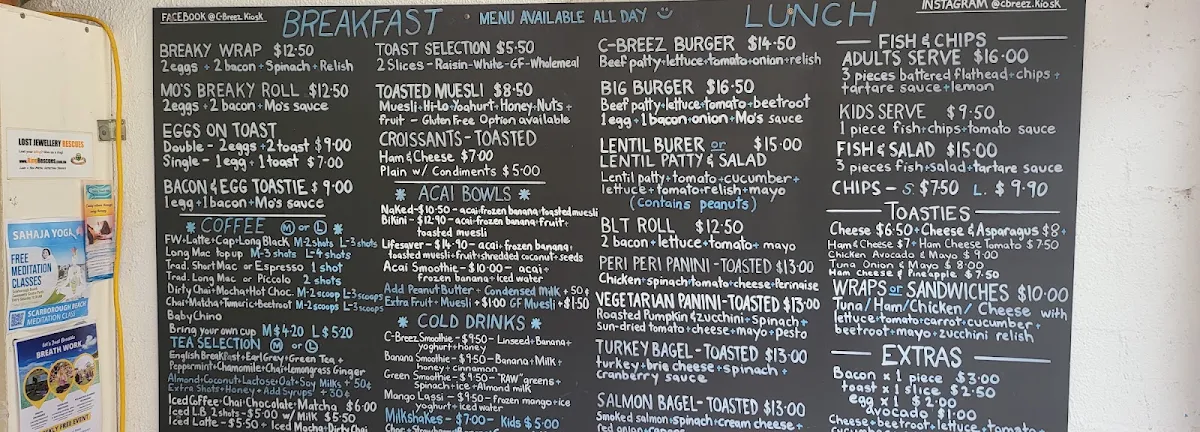 FACEBOOK @ C-Breez Kiosk
BREAKFAST · MENU AVAILABLE ALL DAY
LUNCH
INSTAGRAM @cbreez.Kiosk
BREAKY WRAP $12.50
2eggs + 2bacon + Spinach + Relish
MO'S BREAKY ROLL $12.50
2eggs + 2bacon + Mo's sauce
EGGS ON TOAST
Double - 2eggs + 2toast $9.00
Single - 1egg + 1toast $7.00
BACON & EGG TOASTIE $9.00
1egg + 1bacon + Mo's sauce
COFFEE M or L
FW + Latte + Cap + Long Black M-2shots L-3shots
Long Mac topup M-3 shots L-4 shots
Trad. Short Mac or Espresso 1 shot
Trad. Long Mac or Piccolo 2 shots
Dirty Chai + Mocha + Hot Choc. M-2 scoop L-3 scoops
Chai + Matcha + Tumeric + Beetroot M-2 scoops L-3 scoops
BabyChino
Bring your own cup M $4.20 L $5.20
TEA SELECTION M or L
English Breakfast + Earl Grey + Green Tea +
Peppermint + Chamomile + Chai + Lemongrass Ginger
Almond + Coconut + Lactose + Oat + Soy Milks + 50¢
Extra Shots + Honey + Add Syrups + 30¢
Iced Coffee + Chai + Chocolate + Matcha $6.00
Iced L.B 2 shots - $5.00 w/ Milk $5.50
Iced Latte - $5.50 + Iced Mocha + Dirty Chai
TOAST SELECTION $5.50
2 Slices - Raisin - White - GF - Wholemeal
TOASTED MUESLI $8.50
Muesli + Hi-Lo Yoghurt + Honey + Nuts +
Fruit - Gluten Free Option available
CROISSANTS - TOASTED
Ham & Cheese $7.00
Plain w/ Condiments $5.00
ACAI BOWLS
Naked - $10.50 - acai + frozen banana + toasted muesli
Bikini - $12.90 - acai + frozen banana + fruit +
toasted muesli
Lifesaver - $14.90 - acai + frozen banana +
toasted muesli + fruit + shredded coconut + seeds
Acai Smoothie - $10.00 - acai +
frozen banana + iced water
Add Peanut Butter + Condensed Milk + 50¢
Extra Fruit + Muesli + $1.00 GF Muesli + $1.50
COLD DRINKS
C-Breez Smoothie - $9.50 - Linseed + Banana +
yoghurt + honey
Banana Smoothie - $9.50 - Banana + Milk +
honey + cinnamon
Green Smoothie - $9.50 - "RAW" greens +
Spinach + ice + Almond milk
Mango Lassi - $9.50 - frozen mango + ice
yoghurt + iced water
Milkshakes - $7.00 - Kids $5.00
C-BREEZ BURGER $14.50
Beef patty + lettuce + tomato + onion + relish
BIG BURGER $16.50
Beef patty + lettuce + tomato + beetroot
1egg + 1bacon + onion + Mo's sauce
LENTIL BURER or $15.00
LENTIL PATTY & SALAD
Lentil patty + tomato + cucumber +
lettuce + tomato + relish + mayo
(contains peanuts)
BLT ROLL $12.50
2 bacon + lettuce + tomato + mayo
PERI PERI PANINI - TOASTED $13.00
Chicken + spinach + tomato + cheese + Perinaise
VEGETARIAN PANINI - TOASTED $13.00
Roasted Pumpkin & zucchini + Spinach +
Sun-dried tomato + cheese + mayo + pesto
TURKEY BAGEL - TOASTED $13.00
turkey + brie cheese + spinach +
Cranberry sauce
SALMON BAGEL - TOASTED $13.00
Smoked salmon + spinach + cream cheese +
FISH & CHIPS
ADULTS SERVE $16.00
3 pieces battered flathead + chips +
tartare sauce + lemon
KIDS SERVE $9.50
1 piece fish + chips + tomato sauce
FISH & SALAD $15.00
3 pieces fish + salad + tartare sauce
CHIPS - S. $7.50 L. $9.90
TOASTIES
Cheese $6.50 + Cheese & Asparagus $8 +
Ham & Cheese $7 + Ham Cheese Tomato $7.50
Chicken Avocado & Mayo $9.00
Tuna Onion & Mayo $8.00
Ham Cheese & Pineapple $7.50
WRAPS or SANDWICHES $10.00
Tuna / Ham / Chicken / Cheese with
lettuce + tomato + carrot + cucumber +
beetroot + mayo + zucchini relish
EXTRAS
Bacon x 1 piece $3.00
toast x 1 slice $2.50
egg x 1 $2.00
avocado $1.00
LOST JEWELLERY RESCUES
SAHAJA YOGA
FREE
MEDITATION
CLASSES
SCARBOROUGH BEACH
MEDITATION CLASS
Let's Just Breathe
BREATH WORK
FREE EVENT